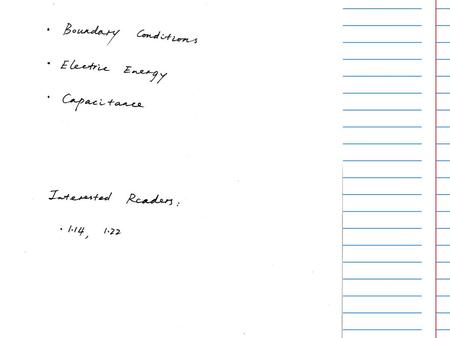 • Boundary Conditions
• Electric Energy
• Capacitance
Interested Readers:
• 1.14, 1.22